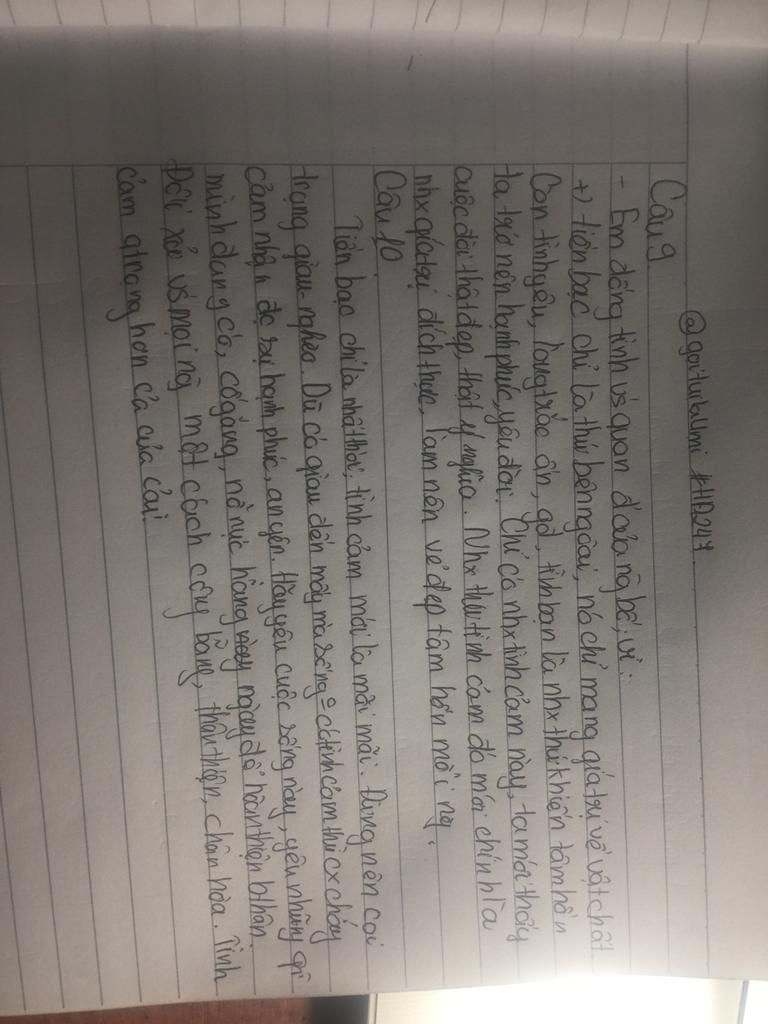 @gaituialumi #HD247
Câu 9
- Em đồng tình vs quan đ của ng bố, vì:
+) tiền bạc chỉ là thứ bên ngoài, nó chỉ mang giá trị về vật chất.
Còn tình yêu, lòng trắc ẩn, gđ, tình bạn là nhx thứ khiến tâm hồn
ta trở nên hạnh phúc, yêu đời. Chỉ có nhx tình cảm này, ta mới thấy
cuộc đời thật đẹp, thật ý nghĩa. Nhx thứ tình cảm đó mới chính là
nhx giá trị đích thực, làm nên vẻ đẹp tâm hồn mỗi ng.
Câu 10
Tiền bạc chỉ là nhất thời, tình cảm mới là mãi mãi. Đừng nên coi
trọng giàu-nghèo. Dù có giàu đến mấy mà sống có tình cảm thì cx chảy
cảm nhận đc sự hạnh phúc, an yên. Hãy yêu cuộc sống này, yêu những gì
mình đang có, cố gắng, nỗ nực hằng ngày để hoàn thiện bthân.
Đối xử vs mọi ng một cách công bằng, thân thiện, chân hòa. Tình
cảm qtrọng hơn cả của cải.